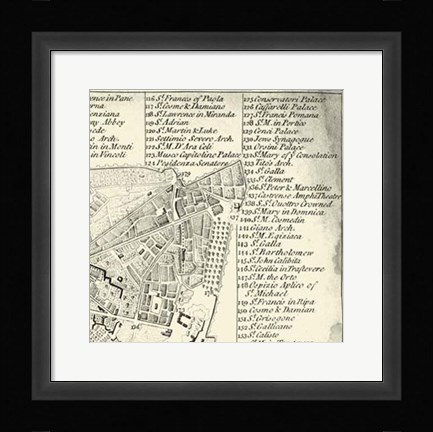 ence in Pane
erna
enziana
ny Abbey
ede
o Arch.
in in Monti
in Vincoli
116 St. Frances of Paola
117 St. Cosmo & Damiano
118 St. Lawrence in Miranda
119 St. Adrian
120 St. Martin & Luke
121 Settimio Severo Arch.
122 St. M. D'Ara Celi
123 Museo Capitoline Palace
124 Residenza Senatore
125 Conservatori Palace
126 Caffarelli Palace
127 St. Francis Romana
128 St. M. in Portico
129 Cenci Palace
130 Jews Synagogue
131 Orsini Palace
132 St. Mary of Consolation
133 Tito's Arch.
134 St. Galla
135 St. Clement
136 St. Peter & Marcellino
137 Castrense AmphiTheatre
138 S.S. Quattro Crowned
139 St. Mary in Domnica
140 St. M. Cosmedin
141 Giano Arch.
142 St. M. Egiziaca
143 St. Galla
144 St. Bartholomew
145 St. John Calibita
146 St. Cecilia in Trastevere
147 St. M. the Orto
148 Ospizio Aplico of
St. Michael
149 St. Francis in Ripa
150 Cosmo & Damian
151 St. Grisogono
152 St. Gallicano
153 St. Calisto
129
137